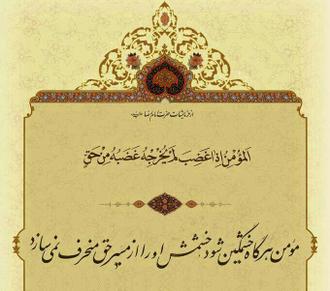 از فرمایشات حضرت امام رضا علیه‌السلام
اَلْمُؤْمِنُ اِذا غَضِبَ لَمْ یُخْرِجْهُ غَضَبُهُ مِنْ حَقٍّ
مؤمن هرگاه خشمگین شود خشمش او را از مسیر حق منحرف نمی سازد